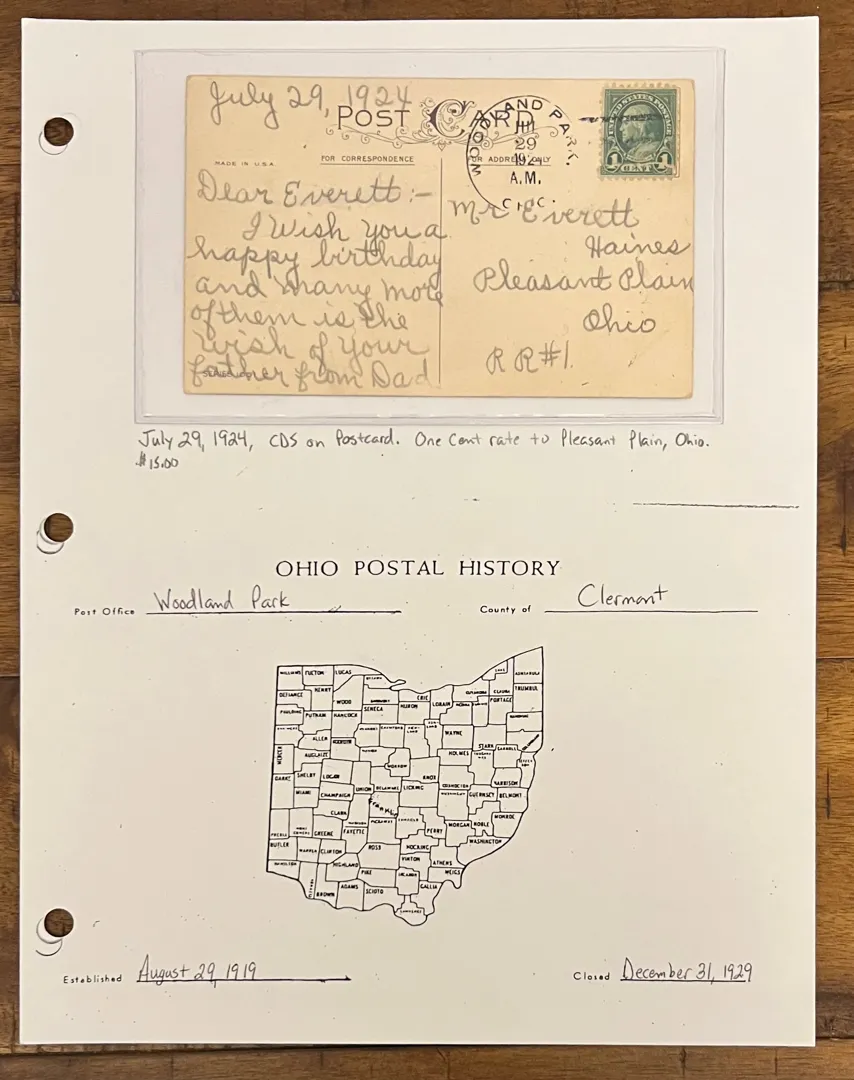 July 29, 1924
POST CARD
WOODLAND PARK.
JUL
29
1924
A.M.
UNITED STATES POSTAGE
1 CENT 1
MADE IN U.S.A.
FOR CORRESPONDENCE
FOR ADDRESS ONLY
Dear Everett:-
I Wish you a
happy birthday
and many more
of them is the
wish of your
father from Dad
Mr Everett
Haines
Pleasant Plain
Ohio
RR#1.
July 29, 1924, CDS on Postcard. One Cent rate to Pleasant Plain, Ohio.
$15.00
OHIO POSTAL HISTORY
Post Office Woodland Park County of Clermont
WILLIAMS FULTON LUCAS
DEFIANCE HENRY WOOD ERIE LORAIN TRUMBUL
PAULDING PUTNAM HANCOCK SENECA HURON PORTAGE
ALLEN WAYNE STARK CARROLL
MERCER AUGLAIZE HOLMES
DARKE SHELBY LOGAN MORROW KNOX COSHOCTON HARRISON
MIAMI CHAMPAIGN UNION DELAWARE LICKING GUERNSEY BELMONT
CLARK Franklin MONROE
PREBLE GREENE FAYETTE PICKAWAY PERRY MORGAN NOBLE
BUTLER WARREN CLINTON ROSS HOCKING WASHINGTON
HAMILTON HIGHLAND PIKE VINTON ATHENS MEIGS
BROWN ADAMS SCIOTO GALLIA
LAWRENCE
Established August 29, 1919 Closed December 31, 1929